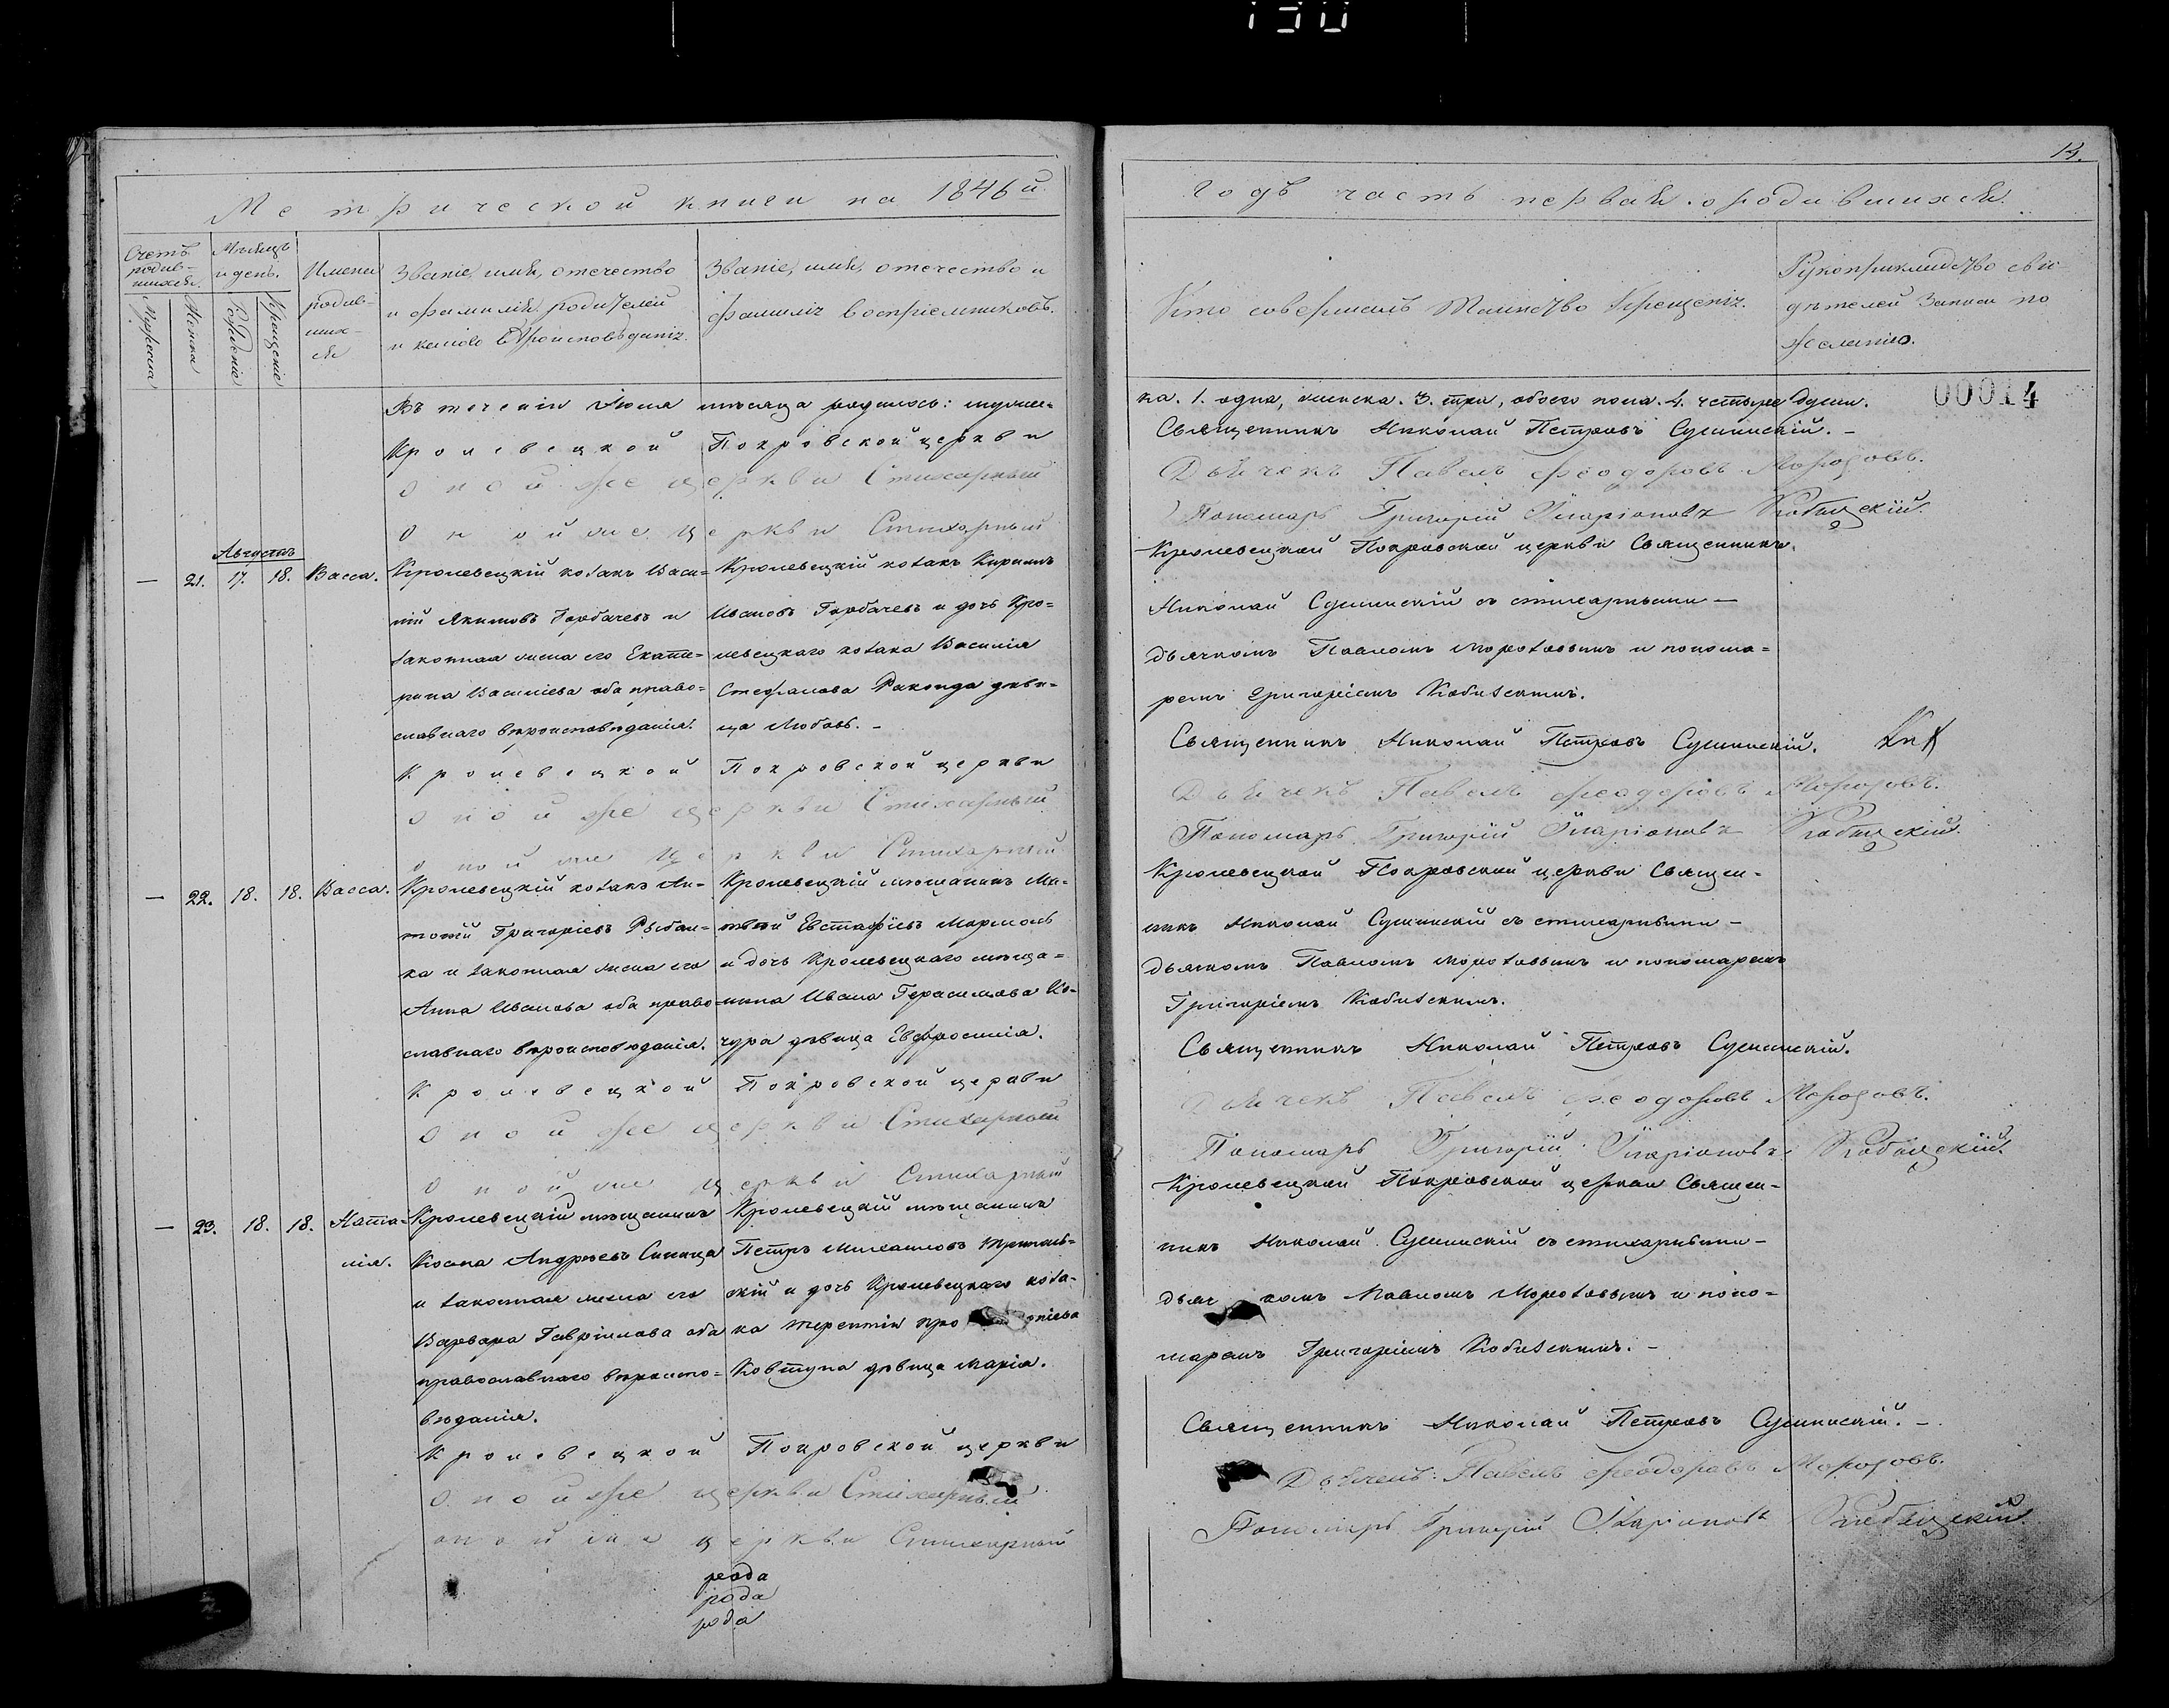 130
14.
Метрической книги на 1846й
годъ часть первая. о родившихся.
Счетъ родив-шихся.
Мужеска
Женска
Мѣсяцъ и день.
Рожденіе
Крещеніе
Имена родив-ших-ся
Званіе, имя, отечество
и фамилія родителей
и какого вѣроисповѣданія.
Званіе, имя, отечество и
фамилія воспріемниковъ.
Кто совершалъ таинство Крещенія.
Рукоприкладство сви-
дѣтелей записи по
желанію.
00014
Въ теченіи Іюля мѣсяца родилось: мужес-
ка. 1. одна, женска. 3. три, обоего пола. 4. четыре души.
Кролевецкой Покровской церкви
Священникъ Николай Петровъ Сушинскій. –
оной же церкви Стихарный
Дьячекъ Павелъ Феодоровъ Морозовъ.
оной же церкви Стихарный
Пономарь Григорій Иларіоновъ
Августъ
– 21. 17. 18. Васса.
Кролевецкій козакъ Васи-
лій Якимовъ Горбачевъ и
законная жена его Екате-
рина Васильева оба право-
славнаго вѣроисповѣданія.
Кролевецкій козакъ Кирилъ
Ивановъ Горбачевъ и дочь Кро-
левецкаго козака Василія
Стефанова дѣви-
ца Любовь. –
Кролевецкой Покровской церкви Священникъ
Николай Сушинскій съ стихарными –
дьячкомъ Павломъ Морозовымъ и понома-
ремъ Григоріемъ
Кролевецкой Покровской церкви
Священникъ Николай Петровъ Сушинскій.
оной же церкви Стихарный
Дьячекъ Павелъ Феодоровъ Морозовъ.
оной же церкви Стихарный
Пономарь Григорій Иларіоновъ
– 22. 18. 18. Васса.
Кролевецкій козакъ Ан-
тоній Григоріевъ Рыбал-
ка и законная жена его
Анна Иванова оба право-
славнаго вѣроисповѣданія.
Кролевецкій мѣщанинъ Ма-
твѣй Евстафіевъ
и дочь Кролевецкаго мѣща-
нина Ивана Герасимова Ко-
чура дѣвица Евфросинія.
Кролевецкой Покровской церкви Священ-
никъ Николай Сушинскій съ стихарными –
дьячкомъ Павломъ Морозовымъ и пономаремъ
Григоріемъ
Кролевецкой Покровской церкви
Священникъ Николай Петровъ Сушинскій.
оной же церкви Стихарный
Дьячекъ Павелъ Феодоровъ Морозовъ.
оной же церкви Стихарный
Пономарь Григорій Иларіоновъ
– 23. 18. 18. Ната-
лія.
Кролевецкій мѣщанинъ
Косма Андреевъ Синица
и законная жена его
Варвара Гавріилова оба
православнаго вѣроиспо-
вѣданія.
Кролевецкій мѣщанинъ
Петръ Михайловъ
и дочь Кролевецкаго коза-
ка Терентія
Ковтуна дѣвица Марія.
Кролевецкой Покровской церкви Священ-
никъ Николай Сушинскій съ стихарными –
дьячкомъ Павломъ Морозовымъ и поно-
маремъ Григоріемъ
Кролевецкой Покровской церкви
Священникъ Николай Петровъ Сушинскій. –
оной же церкви Стихарный
Дьячекъ Павелъ Феодоровъ Морозовъ.
оной же церкви Стихарный
Пономарь Григорій Иларіоновъ
рода
рода
рода